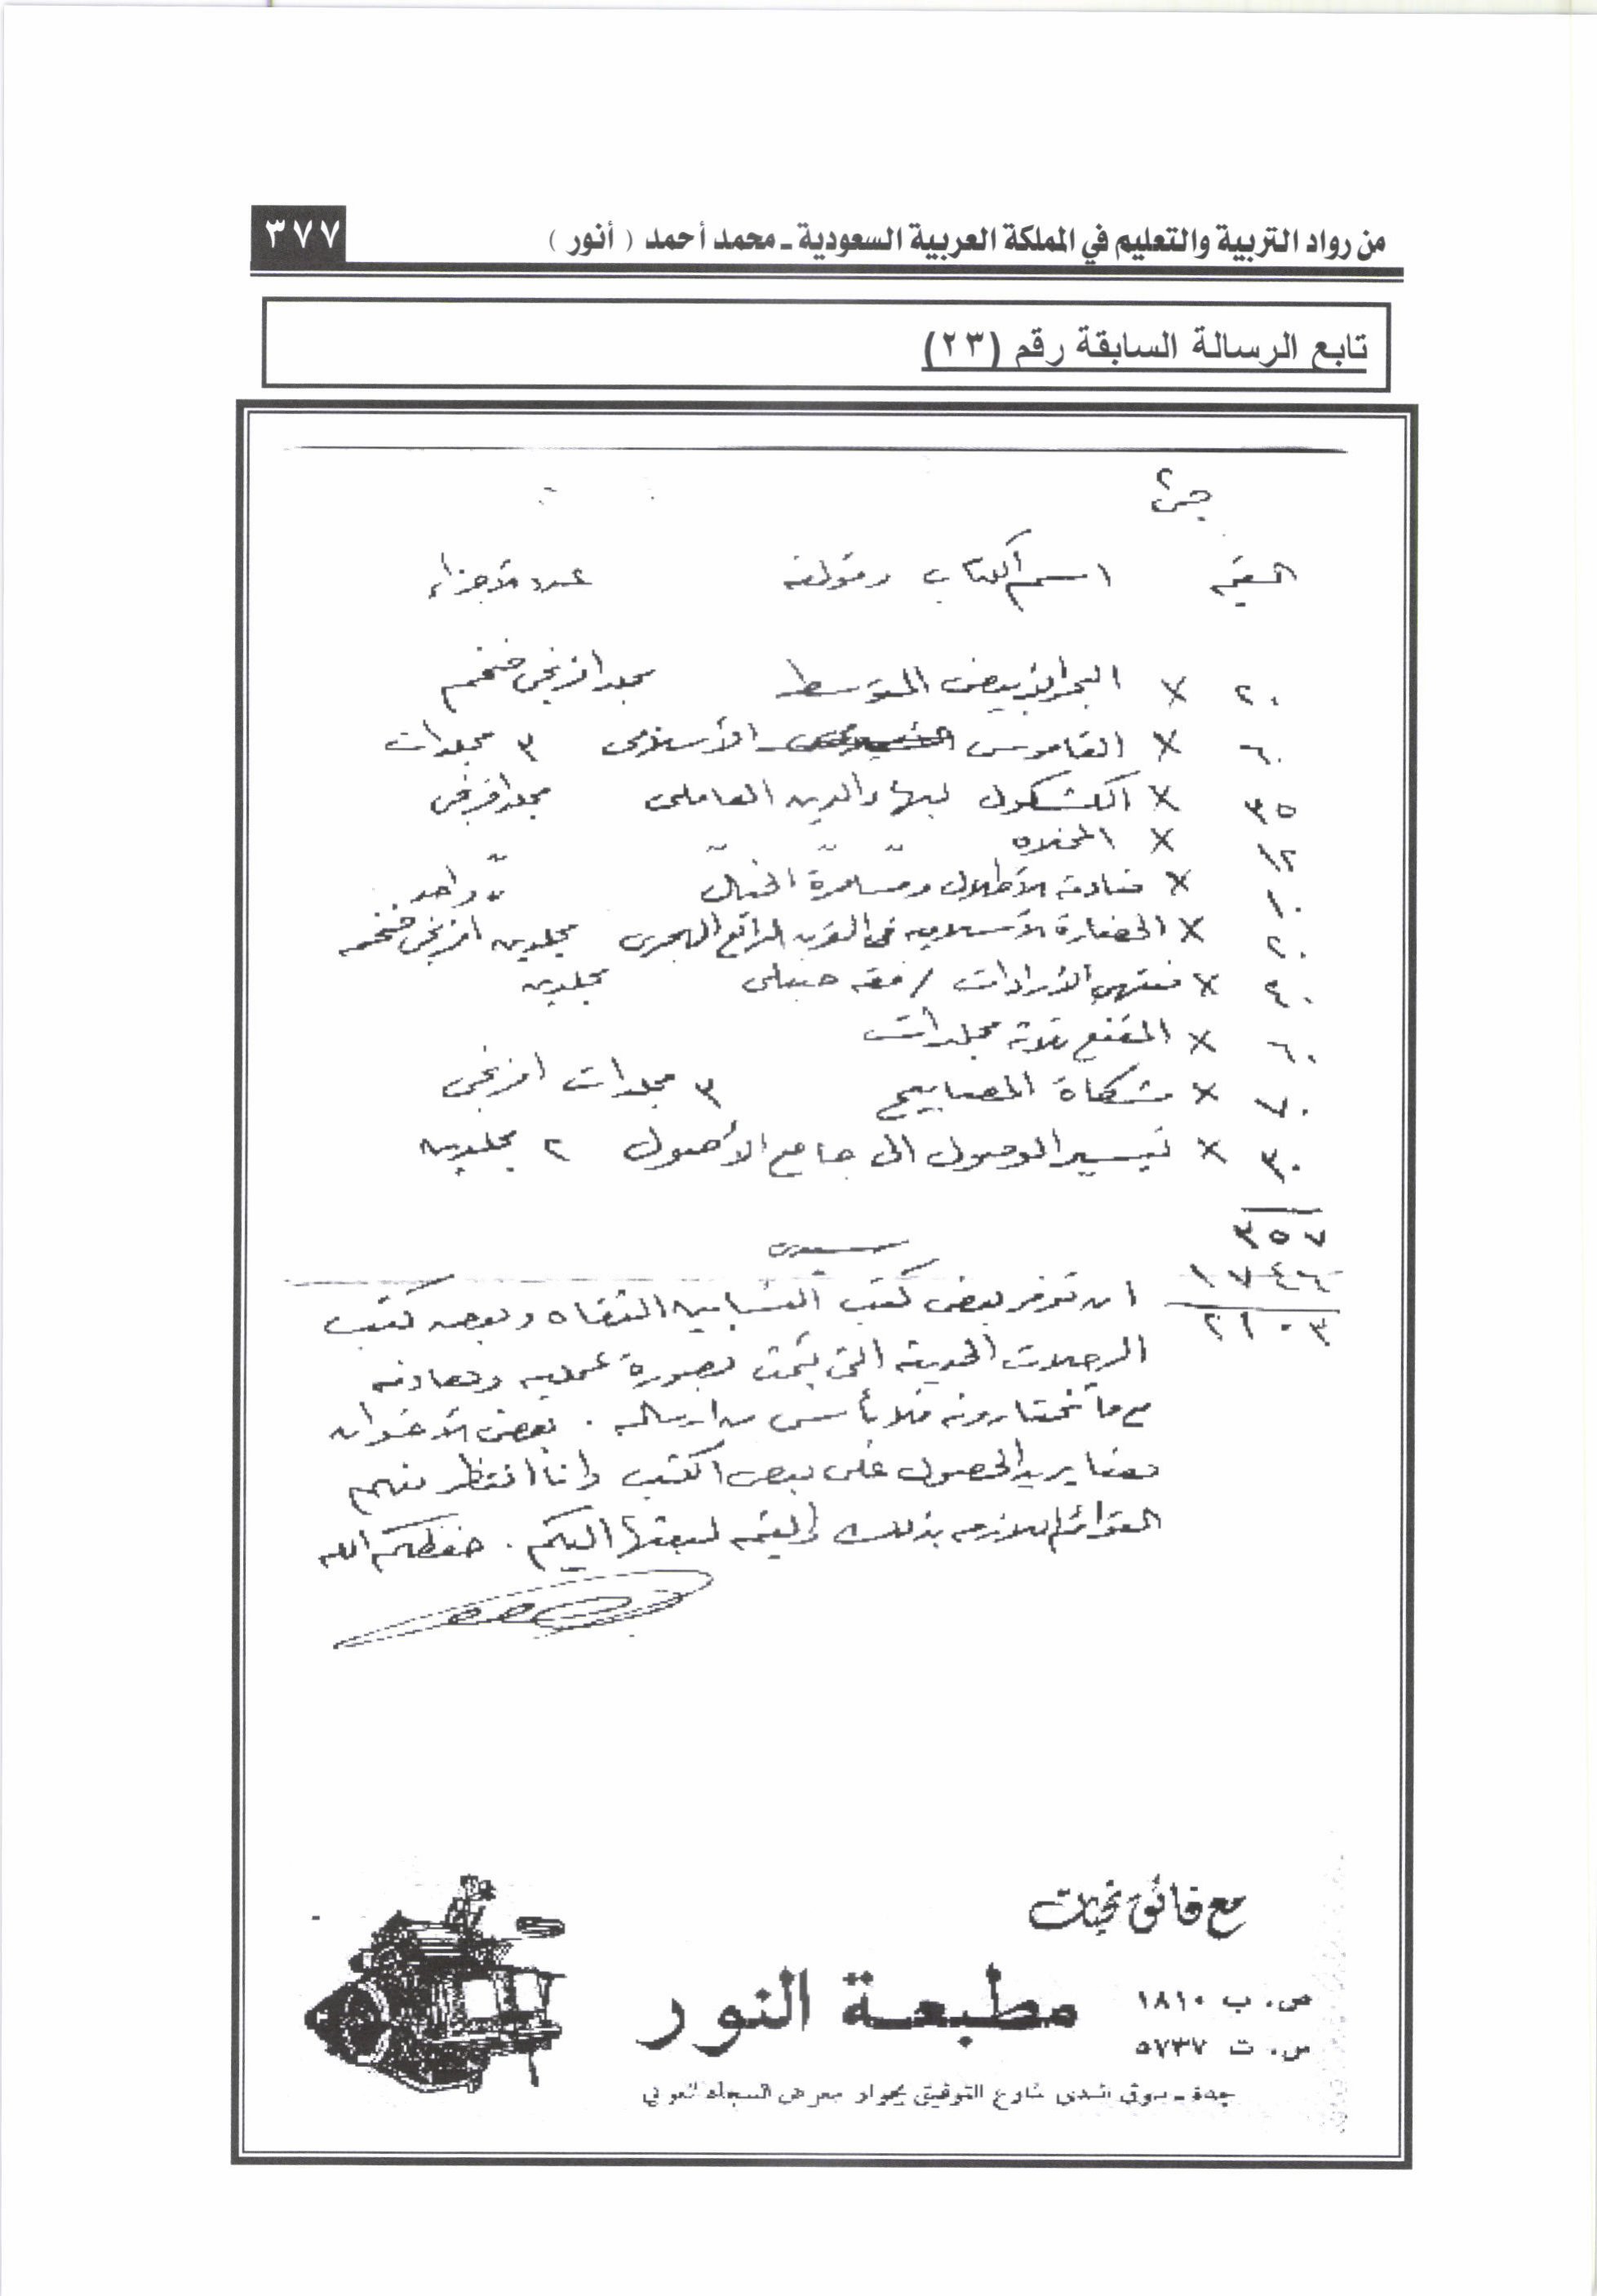 من رواد التربية والتعليم في المملكة العربية السعودية ـ محمد أحمد ( أنور ) ٣٧٧
تابع الرسالة السابقة رقم (٢٣)
القيمة اسم الكتاب ومؤلفه عدد الأجزاء
٢٠ × البحر الأبيض المتوسط مجلد افرنجى ضخم
٦٠ × القاموس الأسلامى ٣ مجلدات
٣٥ × الكشكول لبهاء الدين العاملى مجلد افرنجى
١٢ × المخلاه " " "
١٠ × منادمة الأطلال ومسامرة الخيال " واحد
٢٠ × الحضارة الأسلاميه فى القرن الرابع الهجرى مجلدين افرنجى ضخمه
٤٠ × منتهى الأرادات / فقه حنبلى مجلدين
٦٠ × المقنع ثلاثة مجلدات
٧٠ × مشكاة المصابيح ٣ مجلدات افرنجى
٣٠ × تيسير الوصول الى جامع الأصول ٢ مجلدين
٣٥٧
١٧٤٦
٢١٠٣
سيدى
ان توفر بعض كتب الثقاه وبعض كتب
الرحلات الحديثه التى تمت بصورة عمليه
مع ما تختارونه فلا بأس من ارساله . بعض الأخوان
يريد الحصول على بعض الكتب وانا انتظر منهم
القوائم اللازمه بذلك والقيمه لبعثها اليكم . حفظكم الله
مع فائق تحيات
مطبعة النور
ص. ب ١٨١٠
س. ت ٥٧٣٧
جدة ـ سوق الندى شارع التوفيق بجوار معرض السجاد